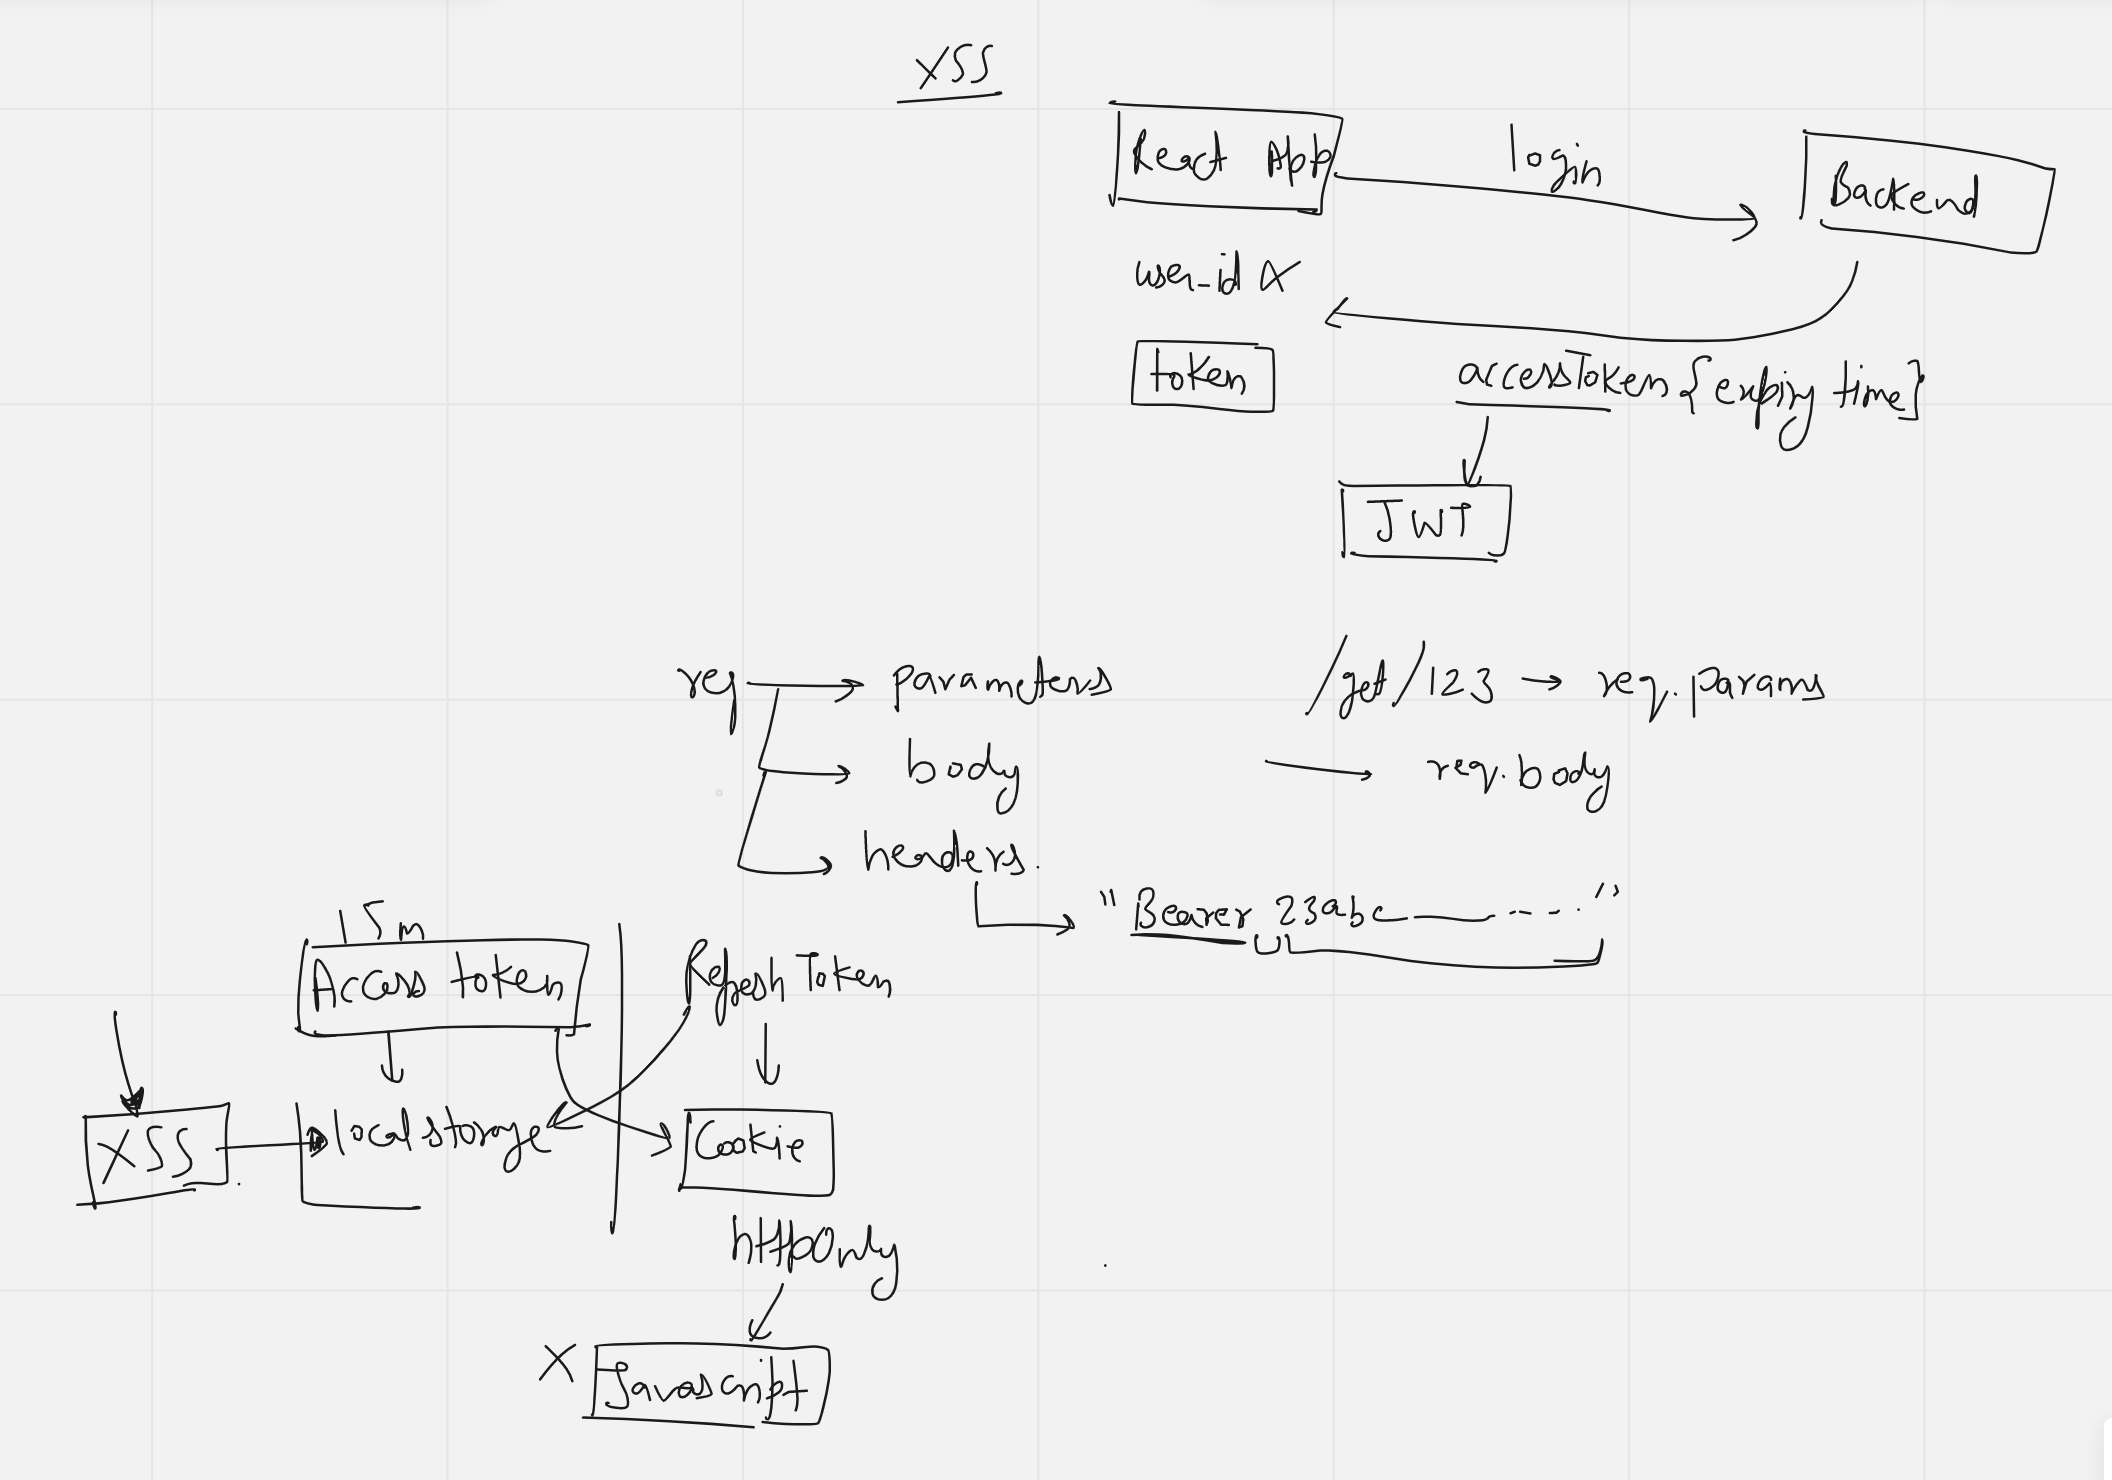 XSS
React App
login
Backend
user_id X
token
accessToken {expiry time}
JWT
req → parameters
/get/123 → req.params
body
→ req.body
headers.
"Bearer 23abc——- - - ·"
15m
Access token
Refresh Token
XSS
localstorage
Cookie
httpOnly
X Javascript